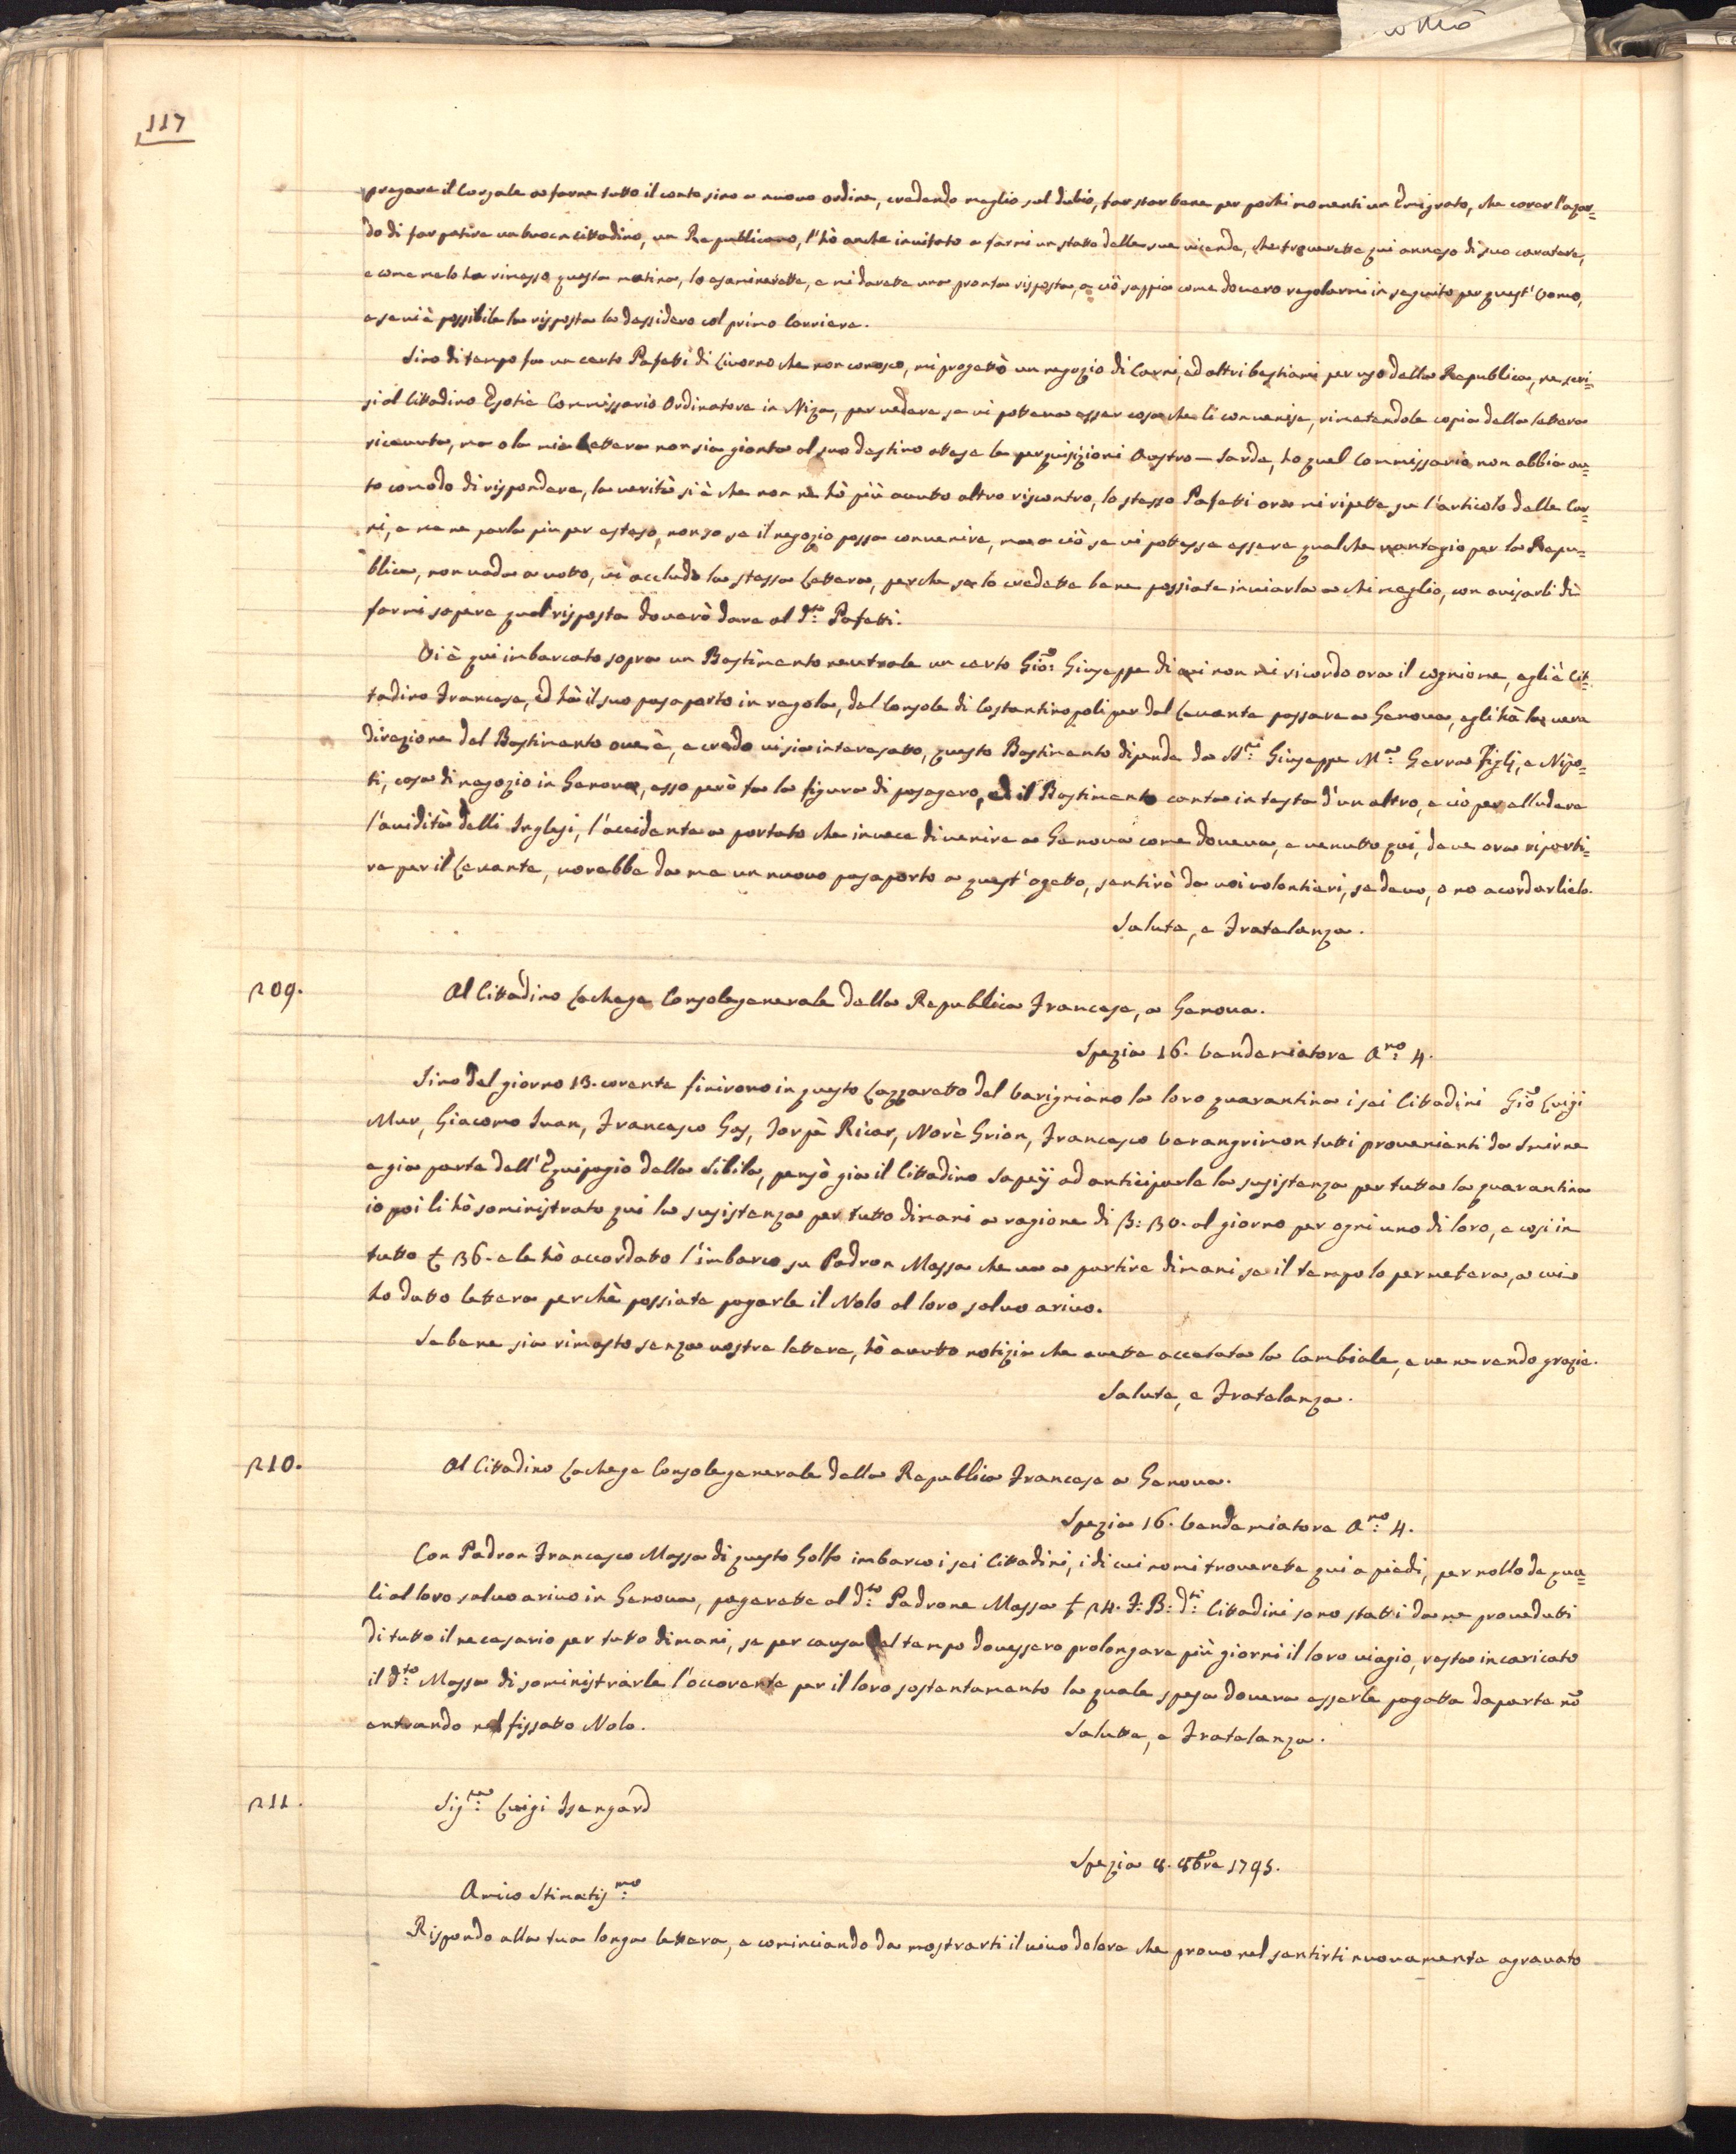 117
pregare il Consale a farne tutto il conto sino a nuovo ordine, credendo meglio sul dubio, far star bene per pochi momenti un Emigrato, che corer l'azar=
do di far patire un buon cittadino, un Republicano, l'hò anche invitato a farmi un stato delle sue vicende, che troverette qui annesso di suo caratere,
e come me lo ha rimesso questa matina, lo esaminerette, e mi darette una pronta risposta, a ciò sappia come dovero regolarmi in seguito per quest' Uomo,
e se vi è possibile la risposta la dessidero col primo Corriere.
Sino di tempo fa un certo Pafetti di Livorno che non conosco, mi progettò un negozio di Carni, ed altri bestiami per uso della Republica, ne scri=
si al Cittadino Esotie Commissario Ordinatore in Niza, per vedere se vi potteva esser cosa che li convenise, rimetendole copia della lettera
ricevuta, ma o la mia lettera non sia gionta al suo destino attese le perquisizioni Austro-Sarde, ho quel Commissario non abbia au=
to comodo di rispondere, la verità si è che non ne hò più avutto altro riscontro, lo stesso Pafetti ora mi ripette su l'articolo delle Car=
ni, e me ne parla piu per esteso, non so se il negozio possa convenire, ma a ciò se vi pottesse essere qualche vantagio per la Repu=
blica, non vada a votto, vi accludo la stessa Lettera, perche se lo credette bene possiate inviarla a chi meglio, con avisarli di
farmi sapere qual risposta doverò dare al d.to Pafetti.
Vi è qui imbarcato sopra un Bastimento neutrale un certo Gio: Giuseppe di cui non mi ricordo ora il cogniome, egli è Cit=
tadino Francese, ed hà il suo pasaporto in regola, del Console di Costantinopoli per dal Levante passare a Genova, egli hà la vera
direzione del Bastimento ove è, e credo vi sia interesatto, questo Bastimento dipende da Sri: Giuseppe Ma: Gerra Figlj, e Nipo=
ti, casa di negozio in Genova, esso però fa la figura di pasagero, ed il Bastimento canta in testa d'un altro, e ciò per alludere
l'avidità delli Inglesi, l'accidente a portato che invece di venire a Genova come doveva, e venutto qui, deve ora riparti=
re per il Levante, vorebbe da me un nuovo pasaporto a quest' ogetto, sentirò da voi volontieri, se devo, o no acordarlielo.
Salute, e Fratelanza.
209.
Al Cittadino Lachege Console generale della Republica Francese, a Genova.
Spezia 16. Vendemiatore Ano: 4.
Sino dal giorno 13. corente finirono in questo Lazzaretto del Varigniano la loro quarantina i sei Cittadini Gio Luigi
Mur, Giacomo Juan, Francesco Gas, Jorpè Ricar, Norè Grion, Francesco Berangrimon tutti provenienti da Smirne
e gia parte dell' Equipagio della Sibila, pensò gia il Cittadino Sapeÿ ad anticiparle la susistenza per tutta la quarantina
io poi li hò soministrato qui la susistenza per tutto dimani a ragione di ß: 30. al giorno per ogni uno di loro, e cosi in
tutto £ 36. e le hò accordatto l'imbarco su Padron Massa che va a partire dimani se il tempo lo permetera, a cui
ho datto lettera perchè possiate pagarle il Nolo al loro salvo arivo.
Se bene sia rimasto senza vostre lettere, hò avutto notizia che avette accetata la Cambiale, e ve ne rendo grazie.
Salute, e Fratelanza.
210.
Al Cittadino Lachege Console generale della Republica Francese a Genova.
Spezia 16. Vendemiatore Ano: 4.
Con Padron Francesco Massa di questo Golfo imbarco i sei Cittadini, i di cui nomi troverette qui a piedi, per nollo de qua=
li al loro salvo arivo in Genova, pagarette al d.to Padrone Massa £ 24. F: B: d.ti Cittadini sono statti da me provedutti
di tutto il necesario per tutto dimani, se per causa del tempo dovessero prolongare più giorni il loro viagio, resta incaricato
il d.to Massa di soministrarle l'occorente per il loro sostentamento la quale spesa dovera esserle pagatta daparte nõ
entrando nel fissatto Nolo.
Salutte, e Fratelanza.
211.
Sigre: Luigi Isengard
Spezia 8. 8bre 1795.
Amico Stimatis.mo
Rispondo alla tua longa lettera, e cominciando da mostrarti il vivo dolore che provo nel sentirti nuovamente agravato